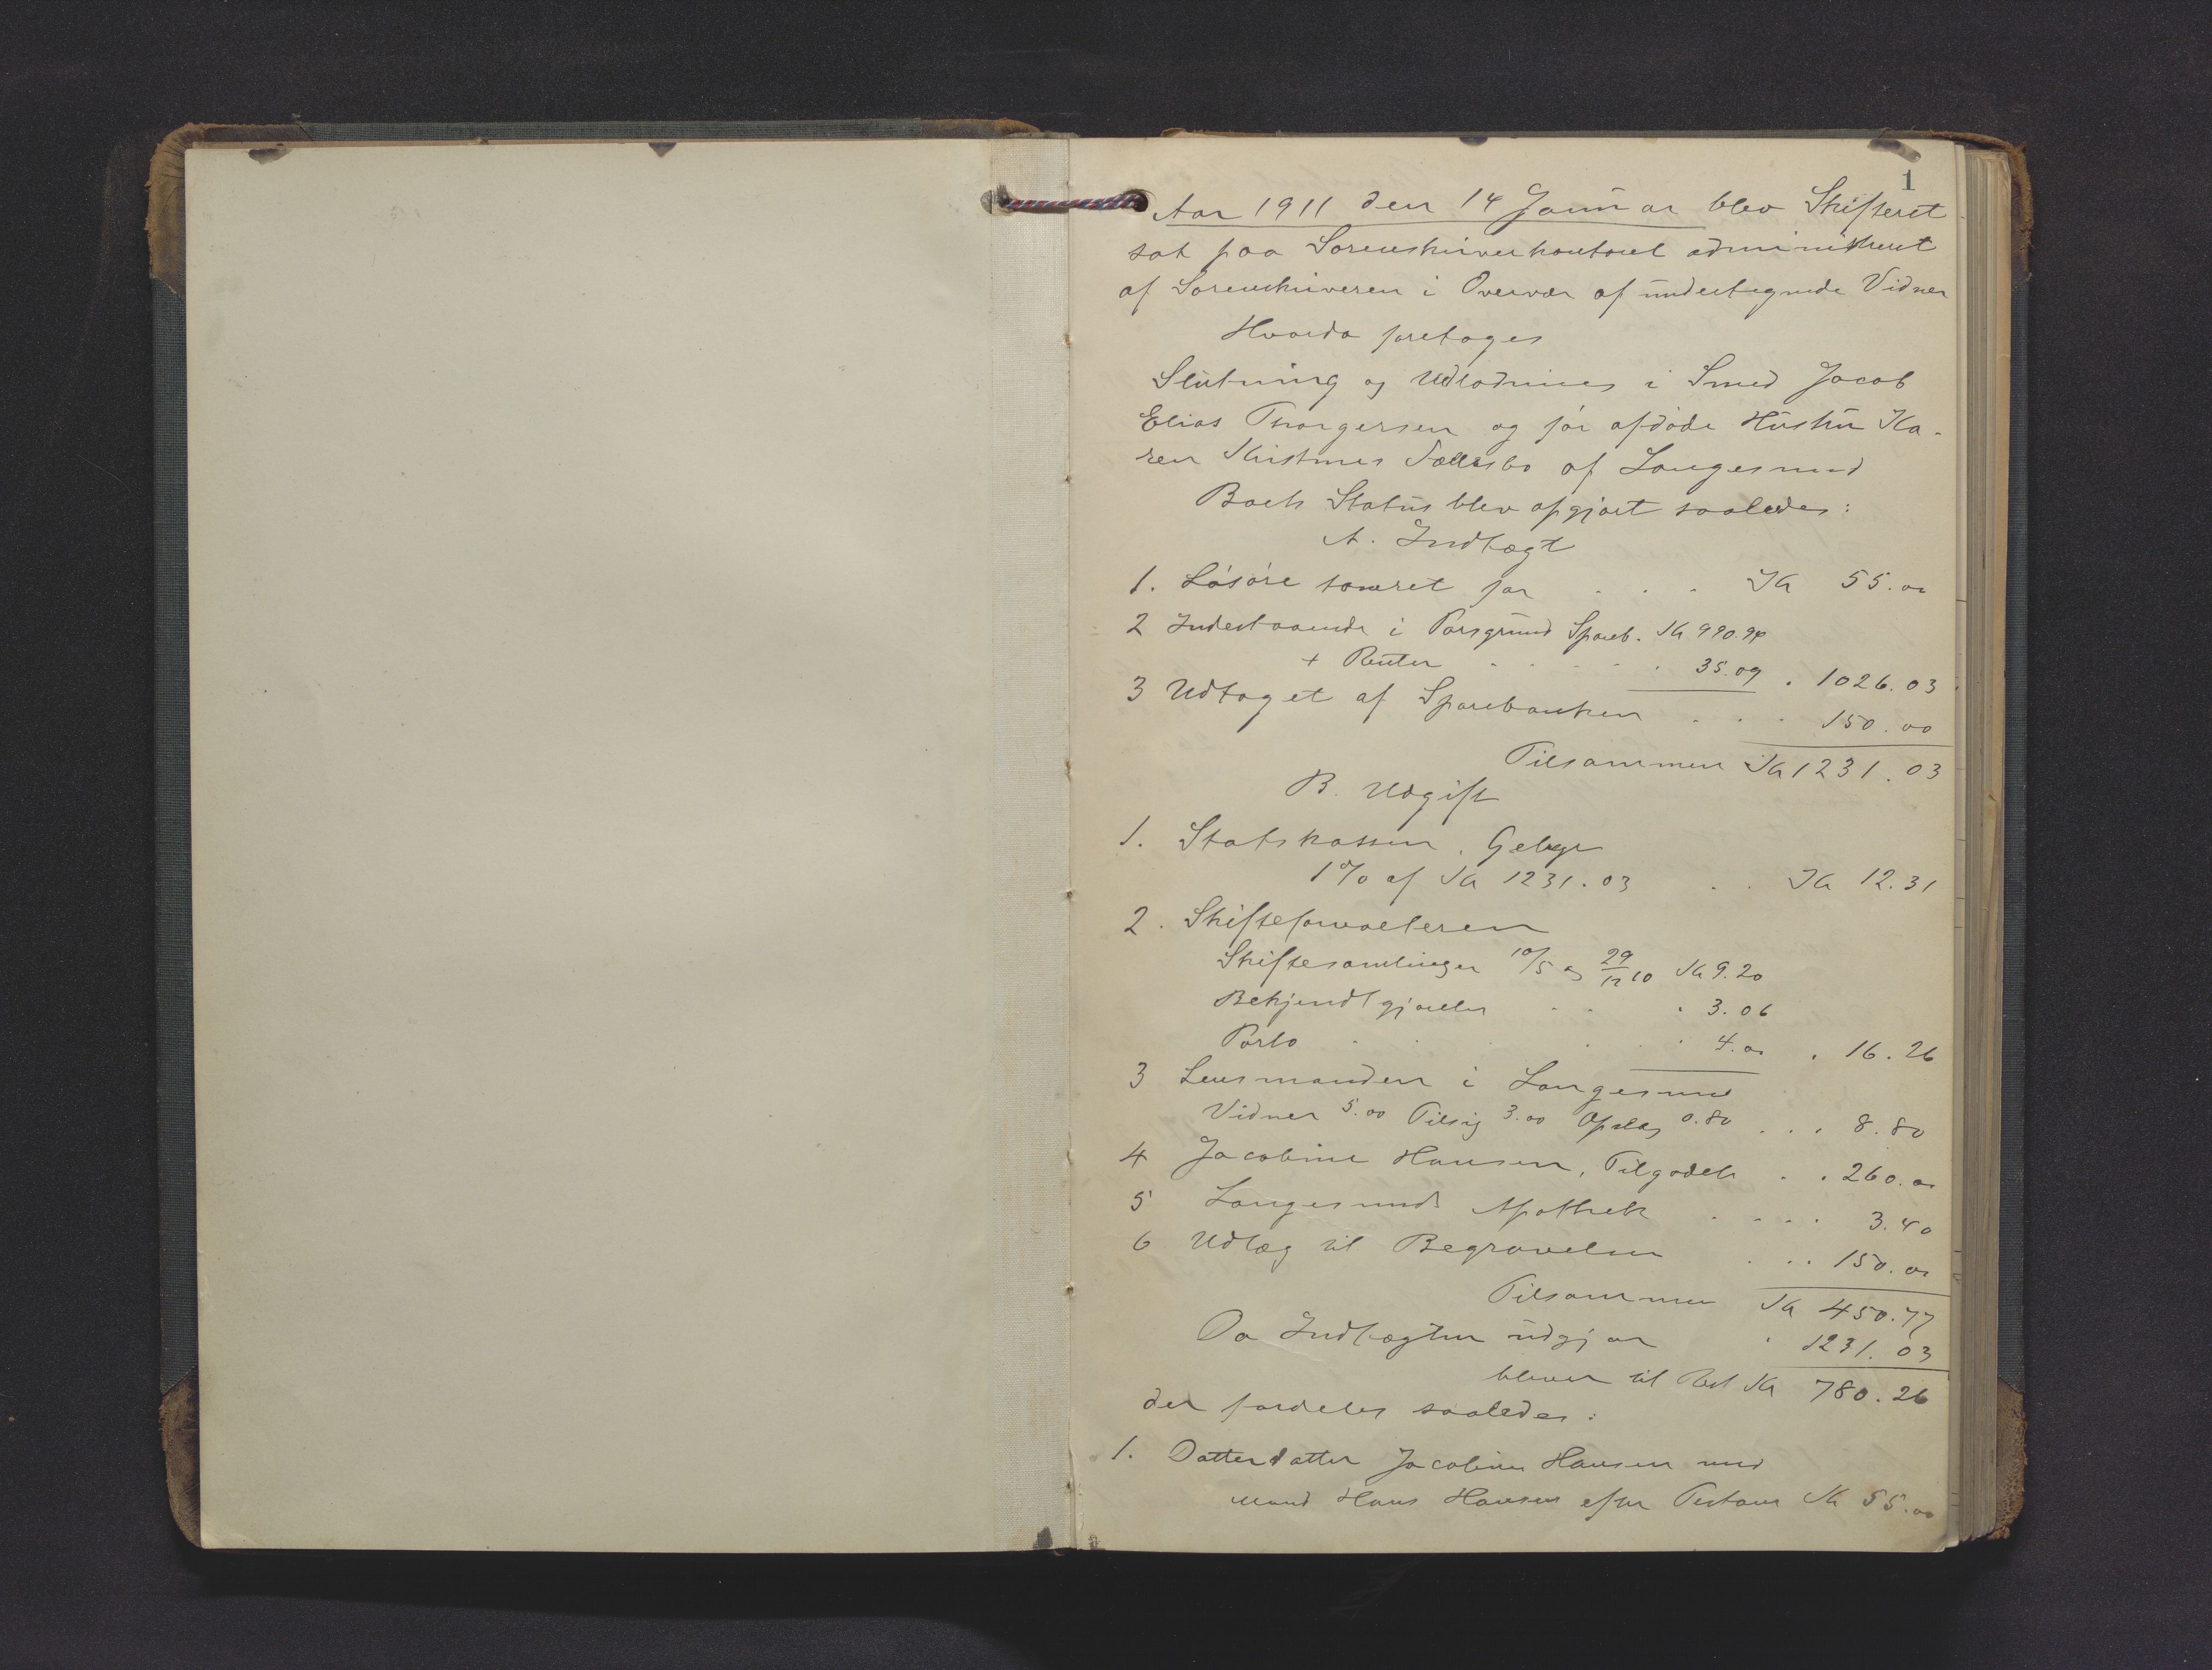 1
Aar 1911 den 14 Januar blev Skifteret
sat paa Sorenskriverkontoret administreret
af Sorenskriveren i Overvær af undertegnede Vidner
Hvorda foretoges
Slutning og Udlodning i Smed Jacob
Elias Thorgersen og før afdøde Hustru Ka-
ren Kristines Fællesbo af Langesund
Boets Status blev opgjort saaledes:
A. Indtægt
1. Løsøre taxeret for . . . Kr 55.00
2 Indestaaende i Porsgrund Spareb. Kr 990.94
+ Renter . . . . . 35.09 . 1026.03
3 Udtaget af Sparebanken . . . 150.00
Tilsammen Kr 1231.03
B. Udgift
1. Statskassen. Gebyr
1% af Kr 1231.03 . . Kr 12.31
2. Skifteforvalteren
Skiftesamlinger 10/5 og 29/12 10 Kr 9.20
Bekjendtgjørelser . . . 3.06
Porto . . . . . . 4.00 . 16.26
3 Lensmanden i Langesund
Vidner 5.00 Tilsig 3.00 Opslag 0.80 . . . 8.80
4 Jacobine Hansen, Tilgodeh . . 260.00
5 Langesunds Apothek . . . . 3.40
6 Udlæg til Begravelsen . . . 150.00
Tilsammen Kr 450.77
Da Indtægten udgjør . 1231.03
bliver til Rest Kr 780.26
der fordeles saaledes:
1. Datterdatter Jacobine Hansen med
Mand Hans Hansen efter Testam Kr 55.00